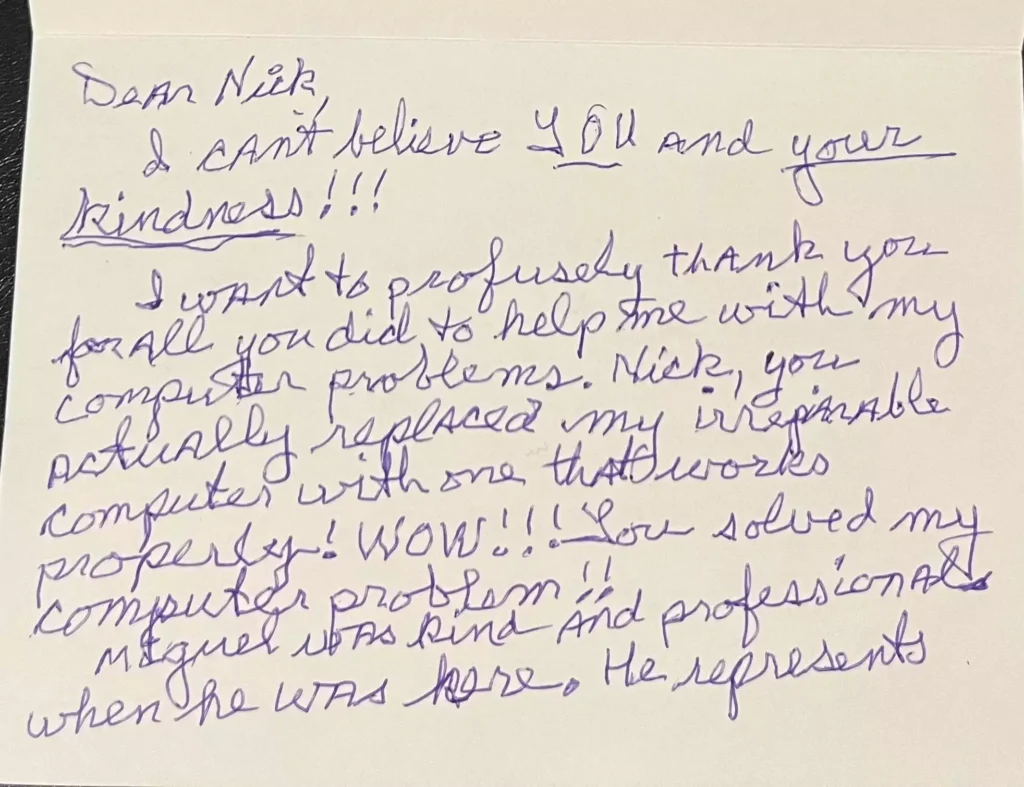 Dear Nick,
I can't believe YOU and your
kindness!!!
I want to profusely thank you
for all you did to help me with my
computer problems. Nick, you
actually replaced my irreparable
computer with one that works
properly! WOW!!! You solved my
computer problem!!
Miguel was kind and professional
when he was here. He represents